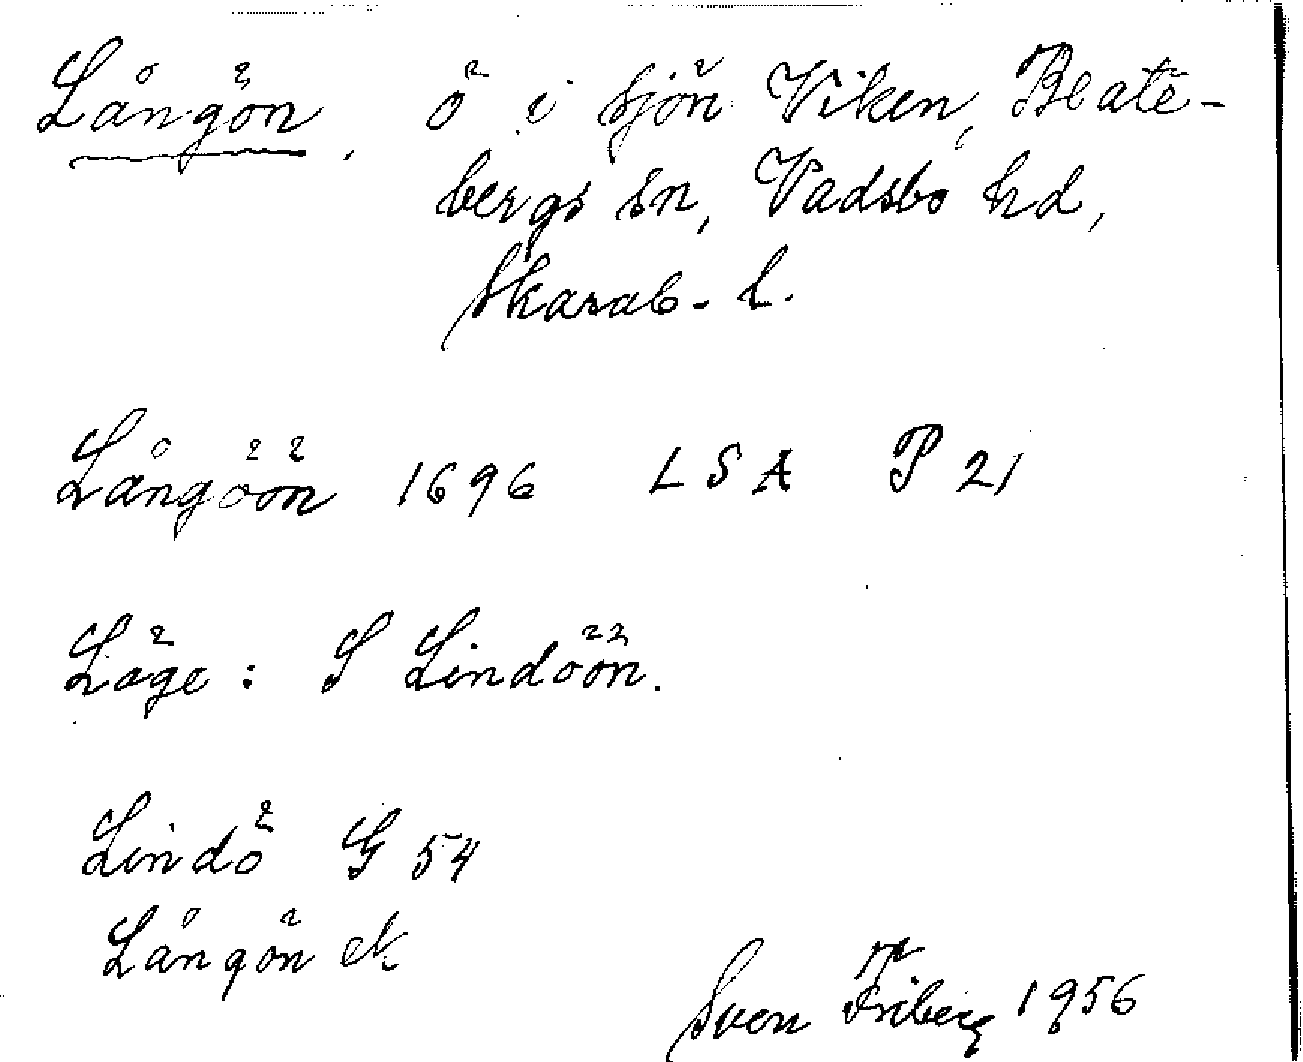 Långön, ö i sjön Viken, Beate-
bergs sn, Vadsbo hd,
Skarab. l.
Långöön 1696 LSA P 21
Läge: S Lindöön.
Lindö G 54
Långön ek
Sven Friberg 1956